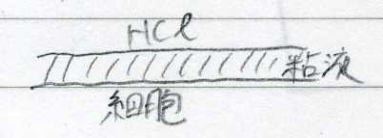 HCl
粘液
細胞